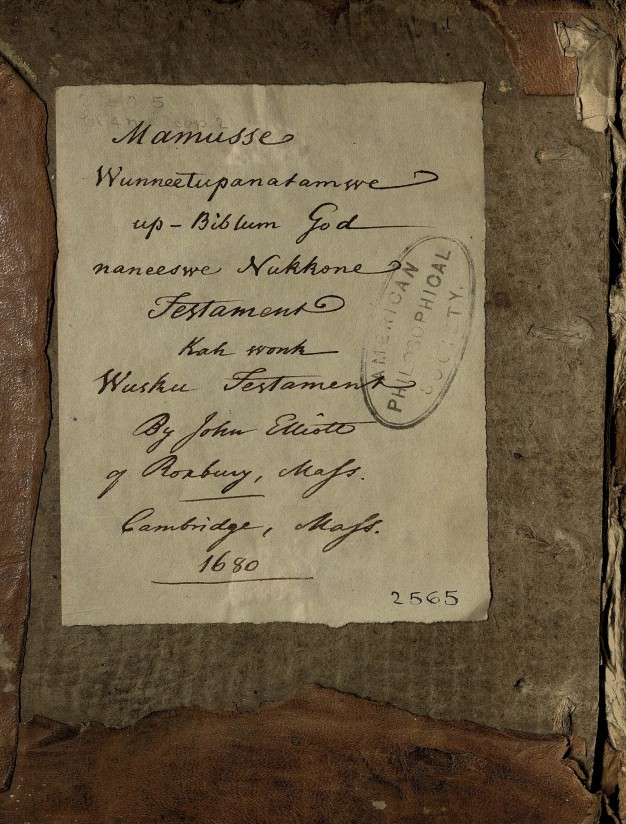 Mamusse
Wunneetupanatamwe
up-Biblum God
naneeswe Nukkone
Testament
Kah wonk
Wusku Testament
By John Elliott
of Roxbury, Mass.
Cambridge, Mass.
1680
2565
AMERICAN
PHILOSOPHICAL
SOCIETY.